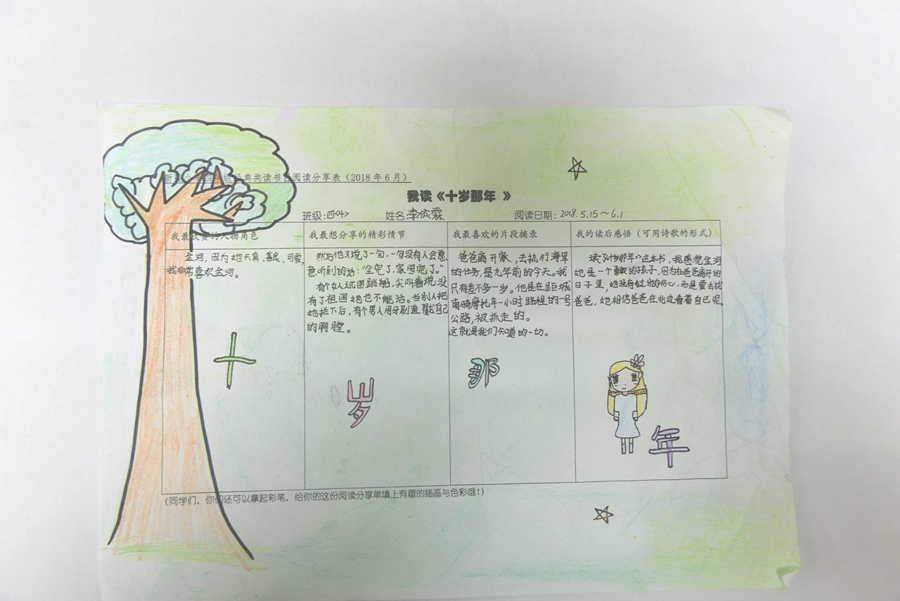 典共读书目阅读分享表（2018年6月）
我读《十岁那年 》
班级:四<4> 姓名:李依霖 阅读日期:2018.5.15～6.1
人物角色
金河，因为她天真、善良、可爱，
我非常喜欢金河。
我最想分享的精彩情节
然后他又说了一句，一句没有人会愿
意听到的话：“全完了，家园完了。”
有个女人试图跳船，尖叫着说，没
有了祖国她也不能活。当别人把
她拦下后，有个男人用牙刷直戳自己
的胸膛。
我最喜欢的片段摘录
爸爸离开家，去执行海军
的任务，是九年前的今天。我
只有差不多一岁。他是在距城
南骑摩托车一小时路程的一号
公路，被抓走的。
这就是我们知道的一切。
我的读后感悟（可用诗歌的形式）
读《十岁那年》这本书，我感觉金河
她是一个 的孩子，因为在爸爸离开的
日子里，她没有 伤心，而是 去找
爸爸，她相信爸爸在 边看着自己呢
十
岁
那
年
(同学们，你们还可以拿起彩笔，给你的这份阅读分享单填上有趣的插画与色彩哦！)